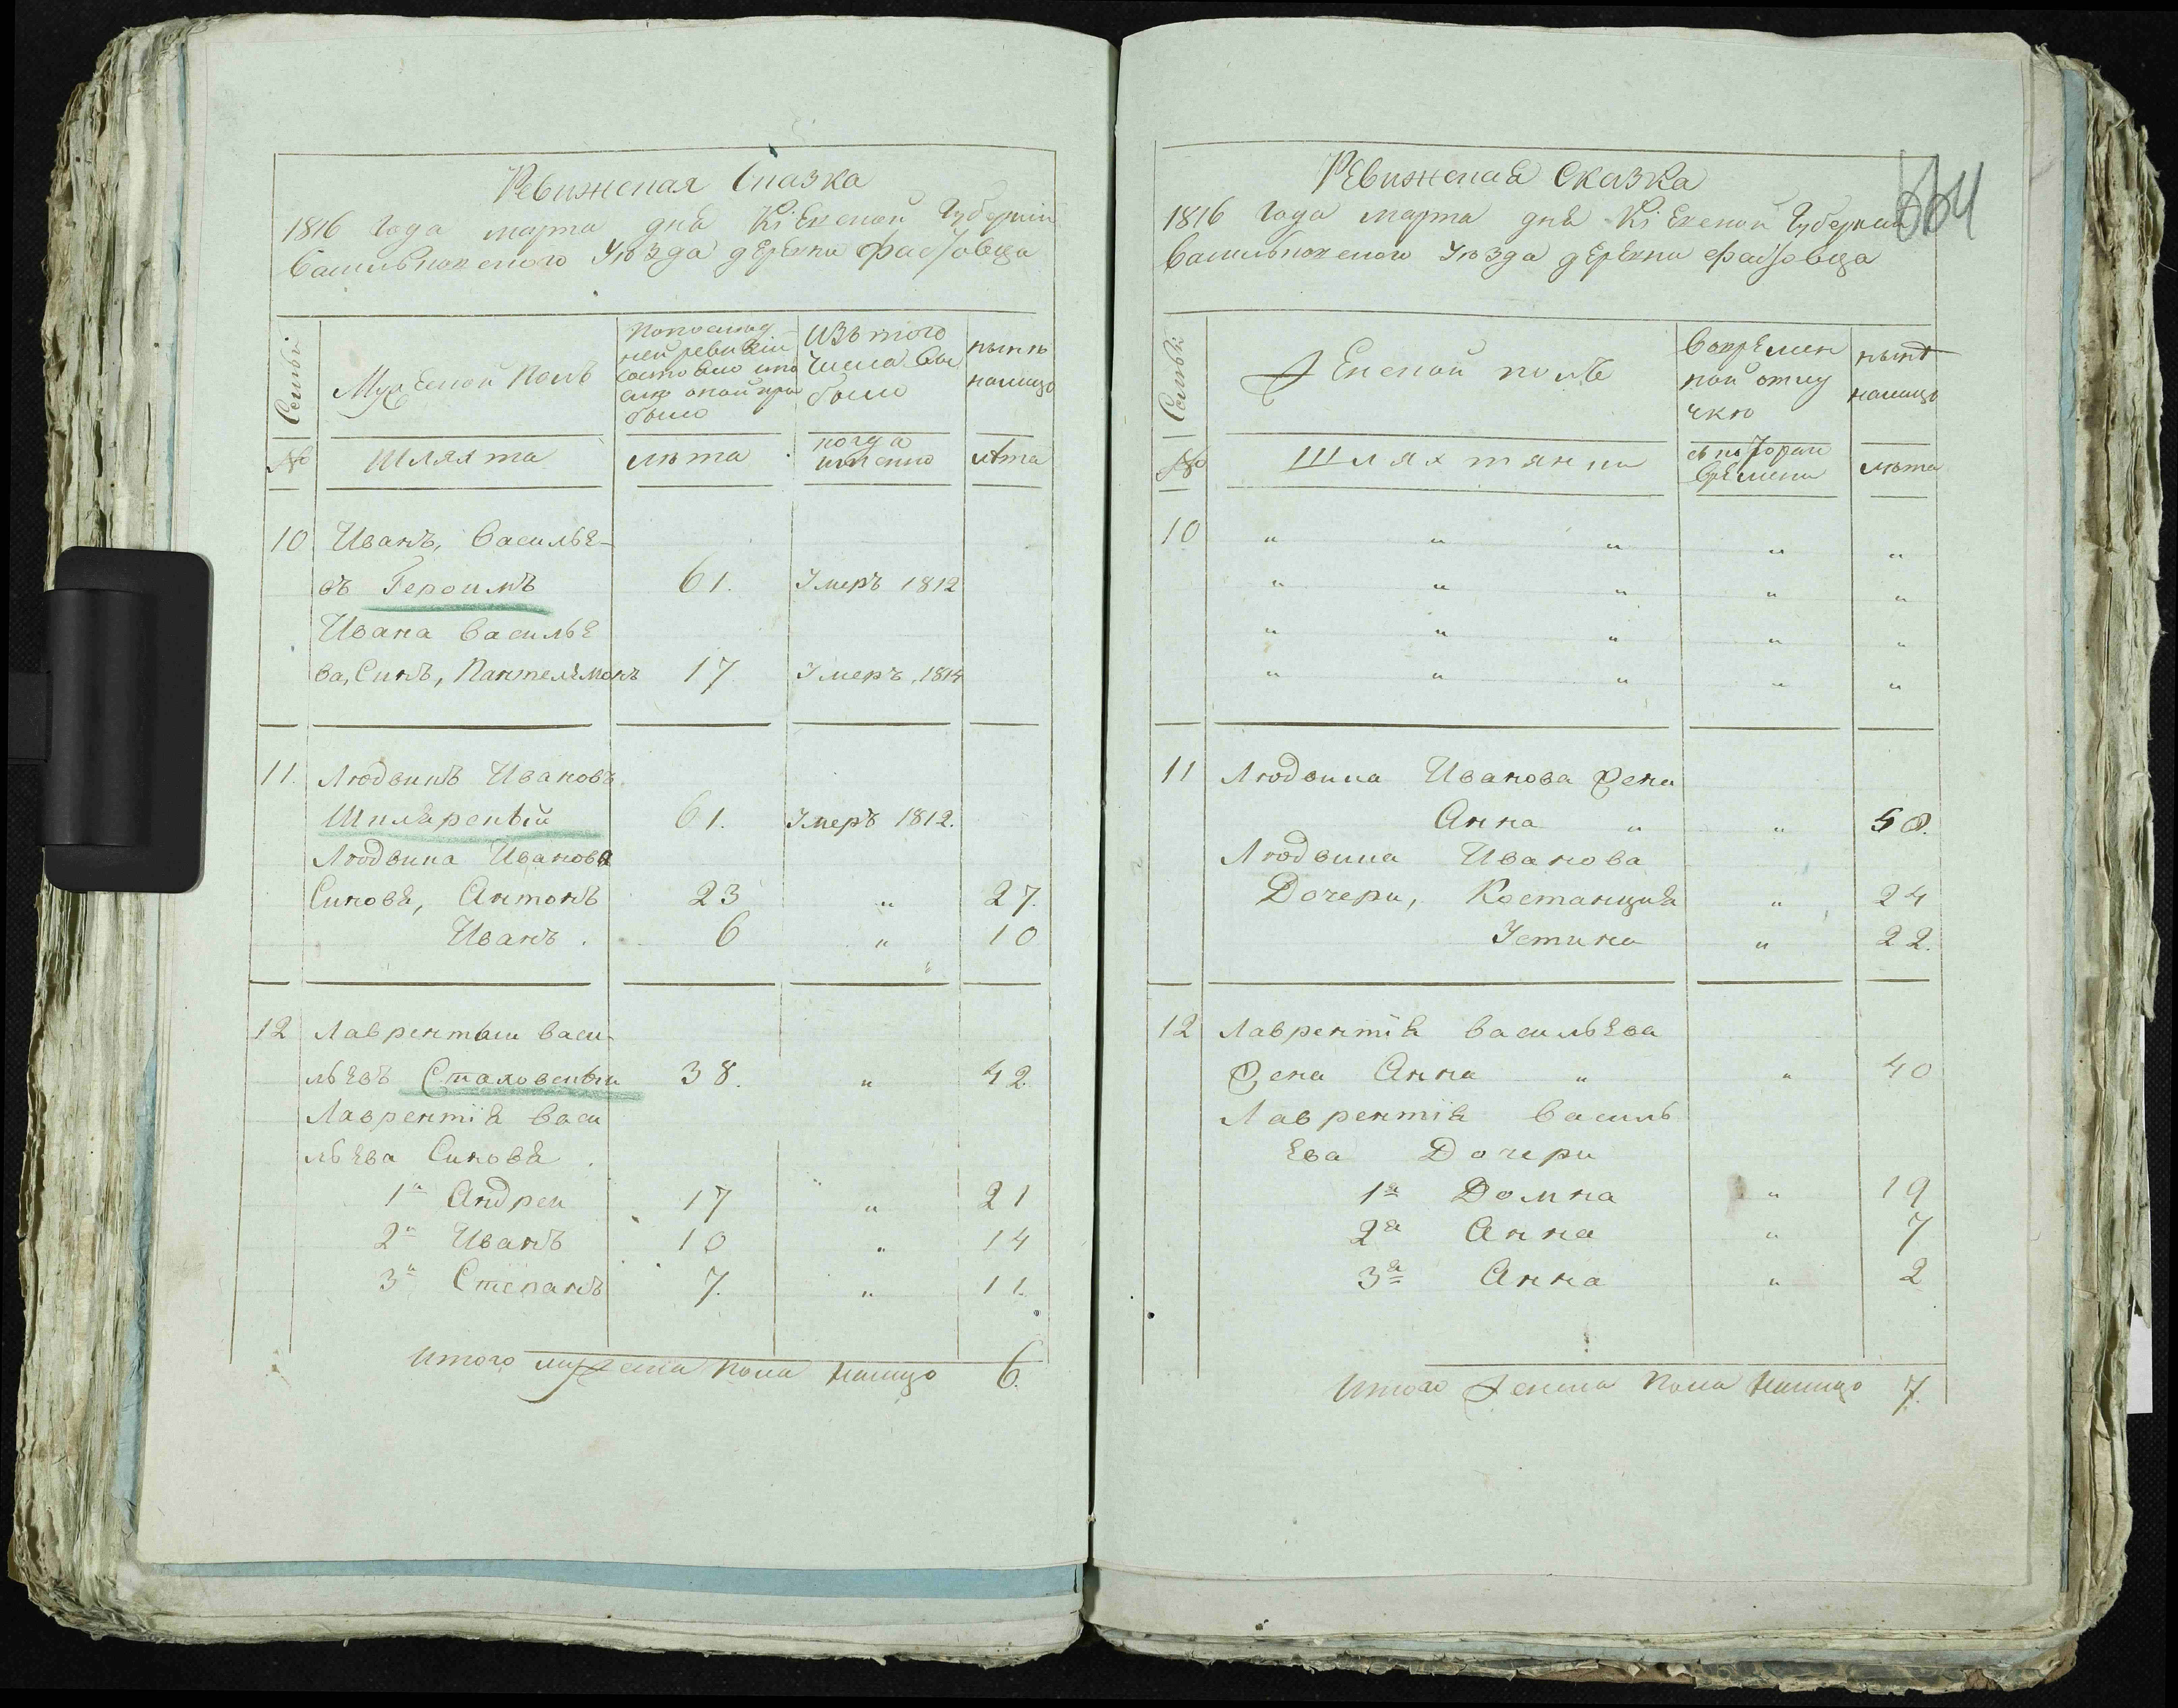 Ревижская Сказка
1816 Года марта дня Кіевской Губерніи
Васильковского Уезда деревни Фастовца
Семьи
Мужеской полъ
По последней ревизіи состояло и после оной прибыло
Изъ того числа выбыло
ныне налицо
№
Шляхта
лета
когда именно
лета
10 Иванъ, Василье-
въ Героимъ 61. Умеръ 1812
Ивана Василье
ва, Синъ, Пантелемонъ 17 Умеръ, 1814
11. Людвикъ Ивановъ
Шклярский 61. Умеръ 1812.
Людвика Иванова
Синовя, Антонъ 23 „ 27.
Иванъ. 6 „ 10
12 Лаврентыи васи-
льевъ Стаховскии 38. „ 42.
Лаврентія Васи
льева Синовя
1й Андреи 17 „ 21
2й Иванъ 10 „ 14
3й Степанъ 7. „ 11.
Итого мужеска пола налицо 6.
664
Ревижская Сказка
1816 Года марта дня Кіевской Губерніи
Васильковского Уезда деревни Фастовца
Семьи
Женской полъ
Во временной отлучке
ныне налицо
№
Шляхтянки
съ которого времени
лета
10 „ „ „ „ „
„ „ „ „ „
„ „ „ „ „
„ „ „ „ „
11 Людвика Иванова Жена
Анна „ „ 58.
Людвика Иванова
Дочери, Костанция „ 24
Устина „ 22.
12 Лаврентія васильева
Жена Анна „ „ 40
Лаврентія Василь
ева Дочери
1я Домна „ 19
2я Анна „ 7
3я Анна „ 2
Итого Женска пола налицо 7.